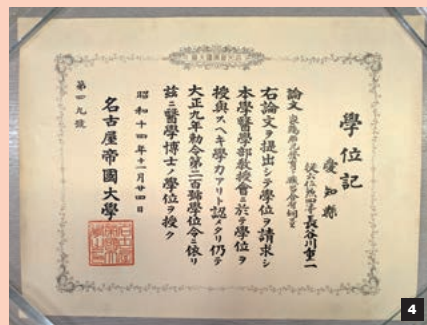 學位記
愛知縣
從六位勲四等 長谷川重一
論文
右論文ヲ提出シテ學位ヲ請求シ
本學醫學部教授會ニ於テ學位ヲ
授與スヘキ學力アリト認メタリ仍テ
大正九年勅令第二百號學位令ニ依リ
茲ニ醫學博士ノ學位ヲ授ク
昭和十四年十一月廿四日
名古屋帝國大學
第四九號
4